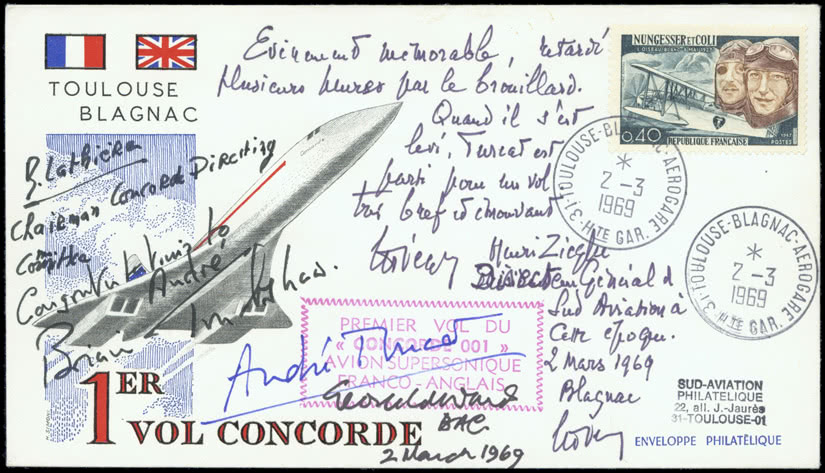 TOULOUSE
BLAGNAC
Evènement mémorable, retardé
plusieurs heures par le brouillard.
Quand il s'est
levé, Turcat est
parti pour un vol
très bref et émouvant
Henri Ziegler
Directeur Général d
Sud Aviation à
Cette époque.
2 Mars 1969
Blagnac
B. Lathière
Chairman Concorde Directing
Comittee
Congratulations to
André
Brian Trubshaw.
André Turcat
George Edwards
BAC
2 March 1969
NUNGESSER ET COLI
L'OISEAU BLANC 8 MAI 1927
0,40
REPUBLIQUE FRANÇAISE
1967
POSTES
31-TOULOUSE-BLAGNAC-AEROGARE
*
2-3
1969
HTE GAR.
31-TOULOUSE-BLAGNAC-AEROGARE
*
2-3
1969
HTE GAR.
PREMIER VOL DU
« CONCORDE 001 »
AVION SUPERSONIQUE
FRANCO-ANGLAIS
1ER
VOL CONCORDE
SUD-AVIATION
PHILATELIQUE
22, all. J.-Jaurès
31-TOULOUSE-01
ENVELOPPE PHILATÉLIQUE